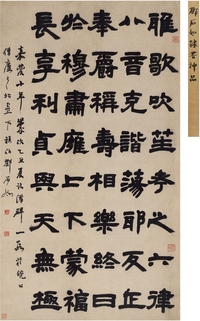 鄧石如隸書神品
雅歌吹笙考之六律
八音克諧蕩邪反正
奉爵稱壽相樂終日
於穆肅雍上下蒙福
長享利貞與天無極
嘉慶十年歲次乙丑夏臨漢碑一段於皖公
鄧石如